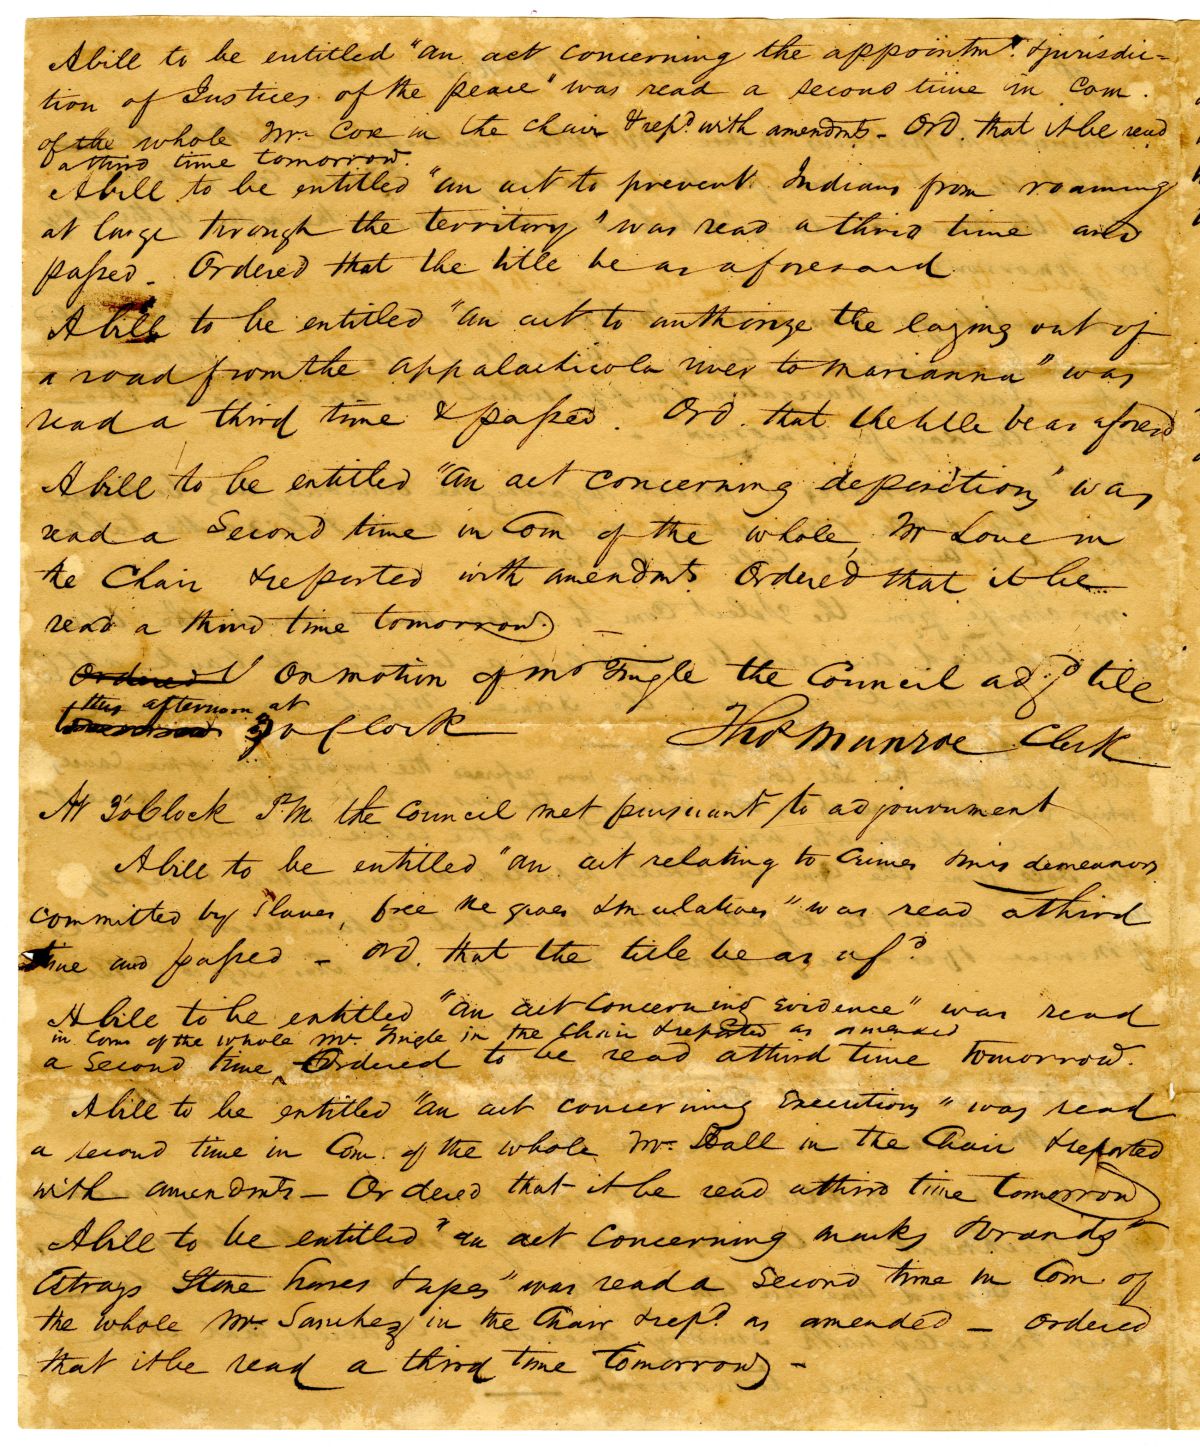 A bill to be entitled "an act concerning the appointmt. & jurisdic=
tion of Justices of the peace" was read a second time in Com.
of the whole Mr. Cox in the chair & repd. with amendmts - Ord. that it be read
a third time tomorrow.
A bill to be entitled "an act to prevent Indians from roaming
at large through the territory" was read a third time and
passed - Ordered that the title be as aforesaid
A bill to be entitled "an act to authorize the laying out of
a road from the Appalachicola river to Marianna" was
read a third time & passed. Ord. that the title be as aforesd
A bill to be entitled "an act concerning depositions" was
read a Second time in Com of the whole, Mr Love in
the Chair & reported with amendmts Ordered that it be
read a third time tomorrow -
Ordered On motion of Mr Fingle the Council adjd. till
this afternoon at
tomorrow 3 o Clock Thos. Munroe Clerk
At 3 oClock P.M. the Council met pursuant to adjournment
A bill to be entitled "an act relating to Crimes & misdemeanors
committed by Slaves, free Negroes & Mulattoes" was read a third
time and passed - Ord. that the title be as afd.
A bill to be entitled "an act concerning Evidence" was read
in Com of the whole Mr. Fingle in the Chair & reported as amended
a Second time ^ Ordered to be read a third time tomorrow.
A bill to be entitled "an act concerning Executions" was read
a second time in Com. of the whole Mr. Hall in the Chair & reported
with amendmts - Ordered that it be read a third time tomorrow
A bill to be entitled "an act concerning marks & brands
Estrays Stone horses & apes" was read a Second time in Com. of
the whole Mr. Sanchez in the Chair & repd. as amended - ordered
that it be read a third time tomorrow -